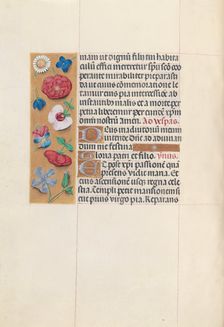 mam ut dignū filii tui habita
culū effici mereretur spū scō co
operante mirabiliter preparasti
da ut cuius cōmemoratione le
tamur eius pia intercessiōe ab
instantibus malis et a morte per
petua liberemur Per eundem xp̄m
dominū nostrū Amen. Ad vesperas.
Deus in adiutoriū meum
intende Dn̄e ad adiuuan
dum me festina
Gloria patri et filio. ymnus.
passionē
presens vidit maria. Et
ascensionem usq regna celes
tia. Templi petit mansionem et
pie virgo pia. Reparans